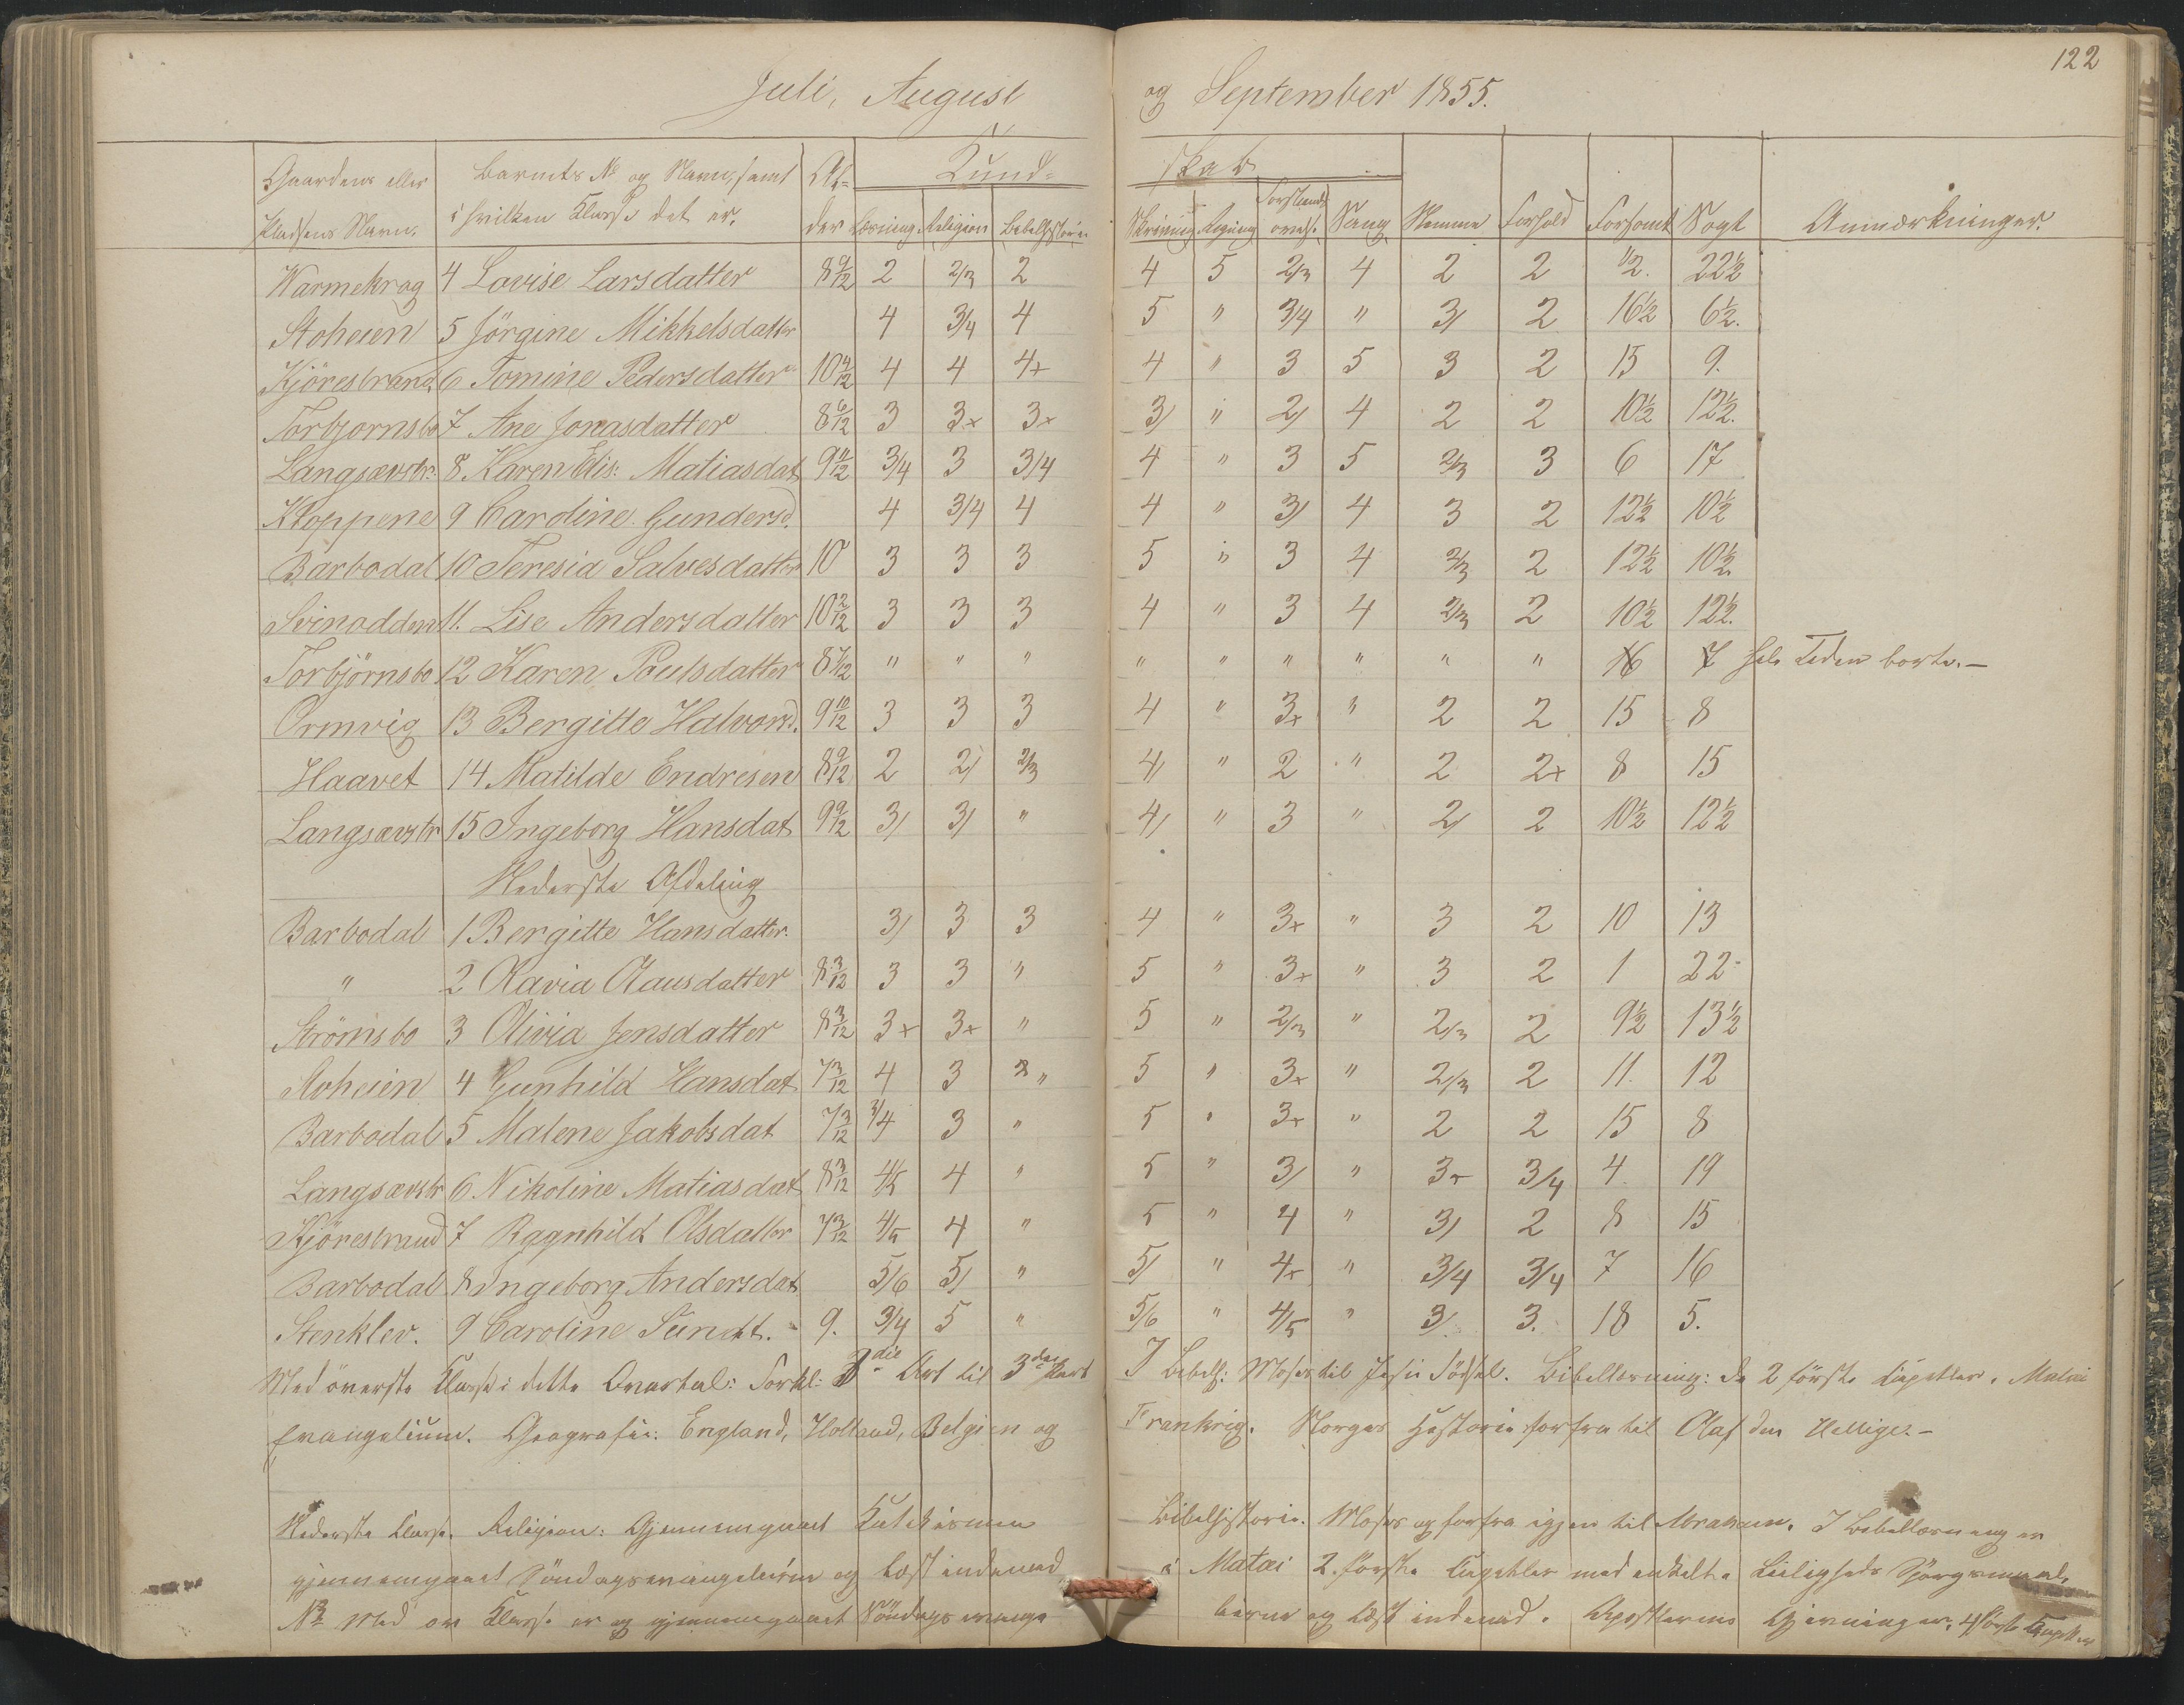 122
Juli, August og September 1855.
Gaardens eller Barnets No og Navn, samt Al= Kund= skab
Pladsens Navn. i hvilken Klasse det er. der Læsning Religion Bibelhistorie Skrivning Regning Forstands øvels. Sang Nemme Forhold Forsømt Søgt Anmærkninger.
Warmekrog 4 Lovise Larsdatter 8 9/12 2 2/3 2 4 5 2/3 4 2 2 1/2. 22 1/2
Stoheien 5 Jörgine Mikkelsdatter 4 3/4 4 5 " 3/4 " 3/ 2 16 1/2 6 1/2.
Kjörestrand 6 Tomine Pedersdatter 10 4/12 4 4 4+ 4 " 3 5 3 2 15 9.
Torbjornsbo 7 Ane Jonasdatter 8 6/12 3 3+ 3+ 3/ " 2/ 4 2 2 10 1/2 12 1/2.
Langsævstr: 8. Karen Elis: Matiasdat 9 11/12 3/4 3 3/4 4 " 3 5 2/3 3 6 17
Kloppene 9 Caroline Gundersd. 4 3/4 4 4 " 3/ 4 3 2 12 1/2 10 1/2
Barbodal 10 Teresia Salvesdatter 10 3 3 3 5 " 3 4 2/3 2 12 1/2 10 1/2
Svinodden 11. Lise Andersdatter 10 2/12 3 3 3 4 " 3 4 2/3 2 10 1/2 12 1/2.
Torbjörnsbo 12 Karen Poulsdatter 8 7/12 " " " " " " " " " 16 7 hele Tiden borte.—
Ormvig 13 Bergitte Halvord. 9 10/12 3 3 3 4 " 3+ " 2 2 15 8
Haavet 14 Matilde Endresen 8 9/12 2 2/ 2/3 4/ " 2 " 2 2+ 8 15
Langsævstr 15 Ingeborg Hansdat 9 9/12 3/ 3/ " 4/ " 3 " 2/ 2 10 1/2 12 1/2
Nederste Afdeling
Barbodal 1 Bergitte Hansdatter. 3/ 3 3 4 " 3+ " 3 2 10 13
" 2 Olavia Olausdatter 8 3/12 3 3 " 5 " 3+ " 3 2 1 22
Strömsbo 3 Olivia Jensdatter 8 3/12 3+ 3+ " 5 " 2/3 " 2/3 2 9 1/2 13 1/2
Stoheien 4 Gunhild Hansdat 7 3/12 4 3 " 5 " 3+ " 2/3 2 11. 12
Barbodal 5 Malene Jakobsdat 7 3/12 3/4 3 " 5 " 3+ " 2 2 15 8
Langsævstr 6 Nikoline Matiasdat 8 3/12 4/5 4 " 5 " 3/ " 3+ 3/4 4. 19
Kjörestrand 7 Ragnhild Olsdatter 7 3/12 4/5 4 " 5 " 4 " 3/ 2 8 15
Barbodal 8 Ingeborg Andersdat 5/6 5/ " 5/ " 4+ " 3/4 3/4 7 16
Stenklev. 9 Caroline 9. 3/4 5 " 5/6 " 4/5 " 3/ 3. 18 5.
Med överste Klasse i dette Qvartal: Forkl: 3die Art til 3die Part I Bibelh: Moses til Jesu Födsel. Bibellæsning: de 2 förste Capitler. Matæi
Evangelium. Geografie: England, Holland, Belgien og Frankrig. Norges Historie forfra til Olaf den Hellige.—
Nederste Klasse. Religion: Gjennemgaaet Katekismen Bibelhistorie. Moses og forfra igjen til Abraham. I Bibellæsning er
gjennemgaaet Söndagsevangelierne og læst indenad i Matæi 2. förste Capitler med enkelte Leiligheds Spörgsmaal,
Med en Klasse er og gjennemgaaet Söndags evange lierne og læst indenad. Apostlernes Gjerninger. 4 förste Capitler